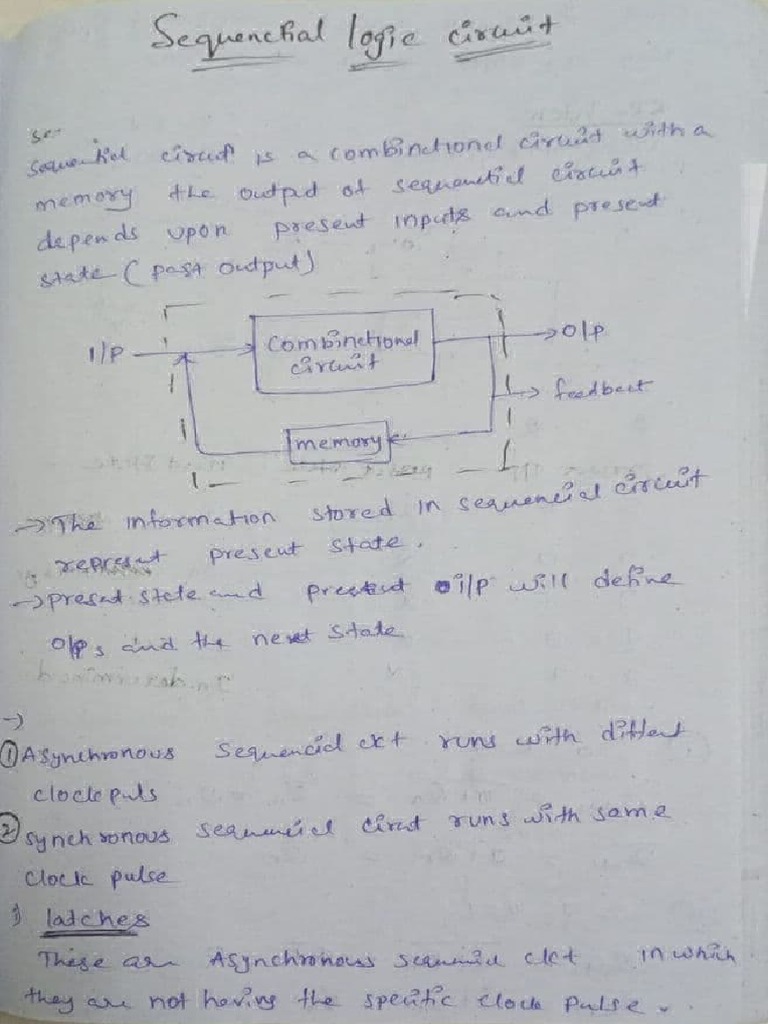 Sequential logic circuit
se-
Sequential circuit is a combinctional circuit with a
memory the output of sequenctial circuit
depends upon present inputs and present
state (past output)
I/P
Combinctional
circuit
O/P
feedback
memory
→ The information stored in sequencial circuit
represent present state.
→ present state and present i/p will define
o/ps and the next state
→
① Asynchronous sequencial ckt runs with diffent
clock puls
② synchronous sequencial circut runs with same
clock pulse
latches
These are Asynchronous sequencial ckt in which
they are not having the specific clock pulse.